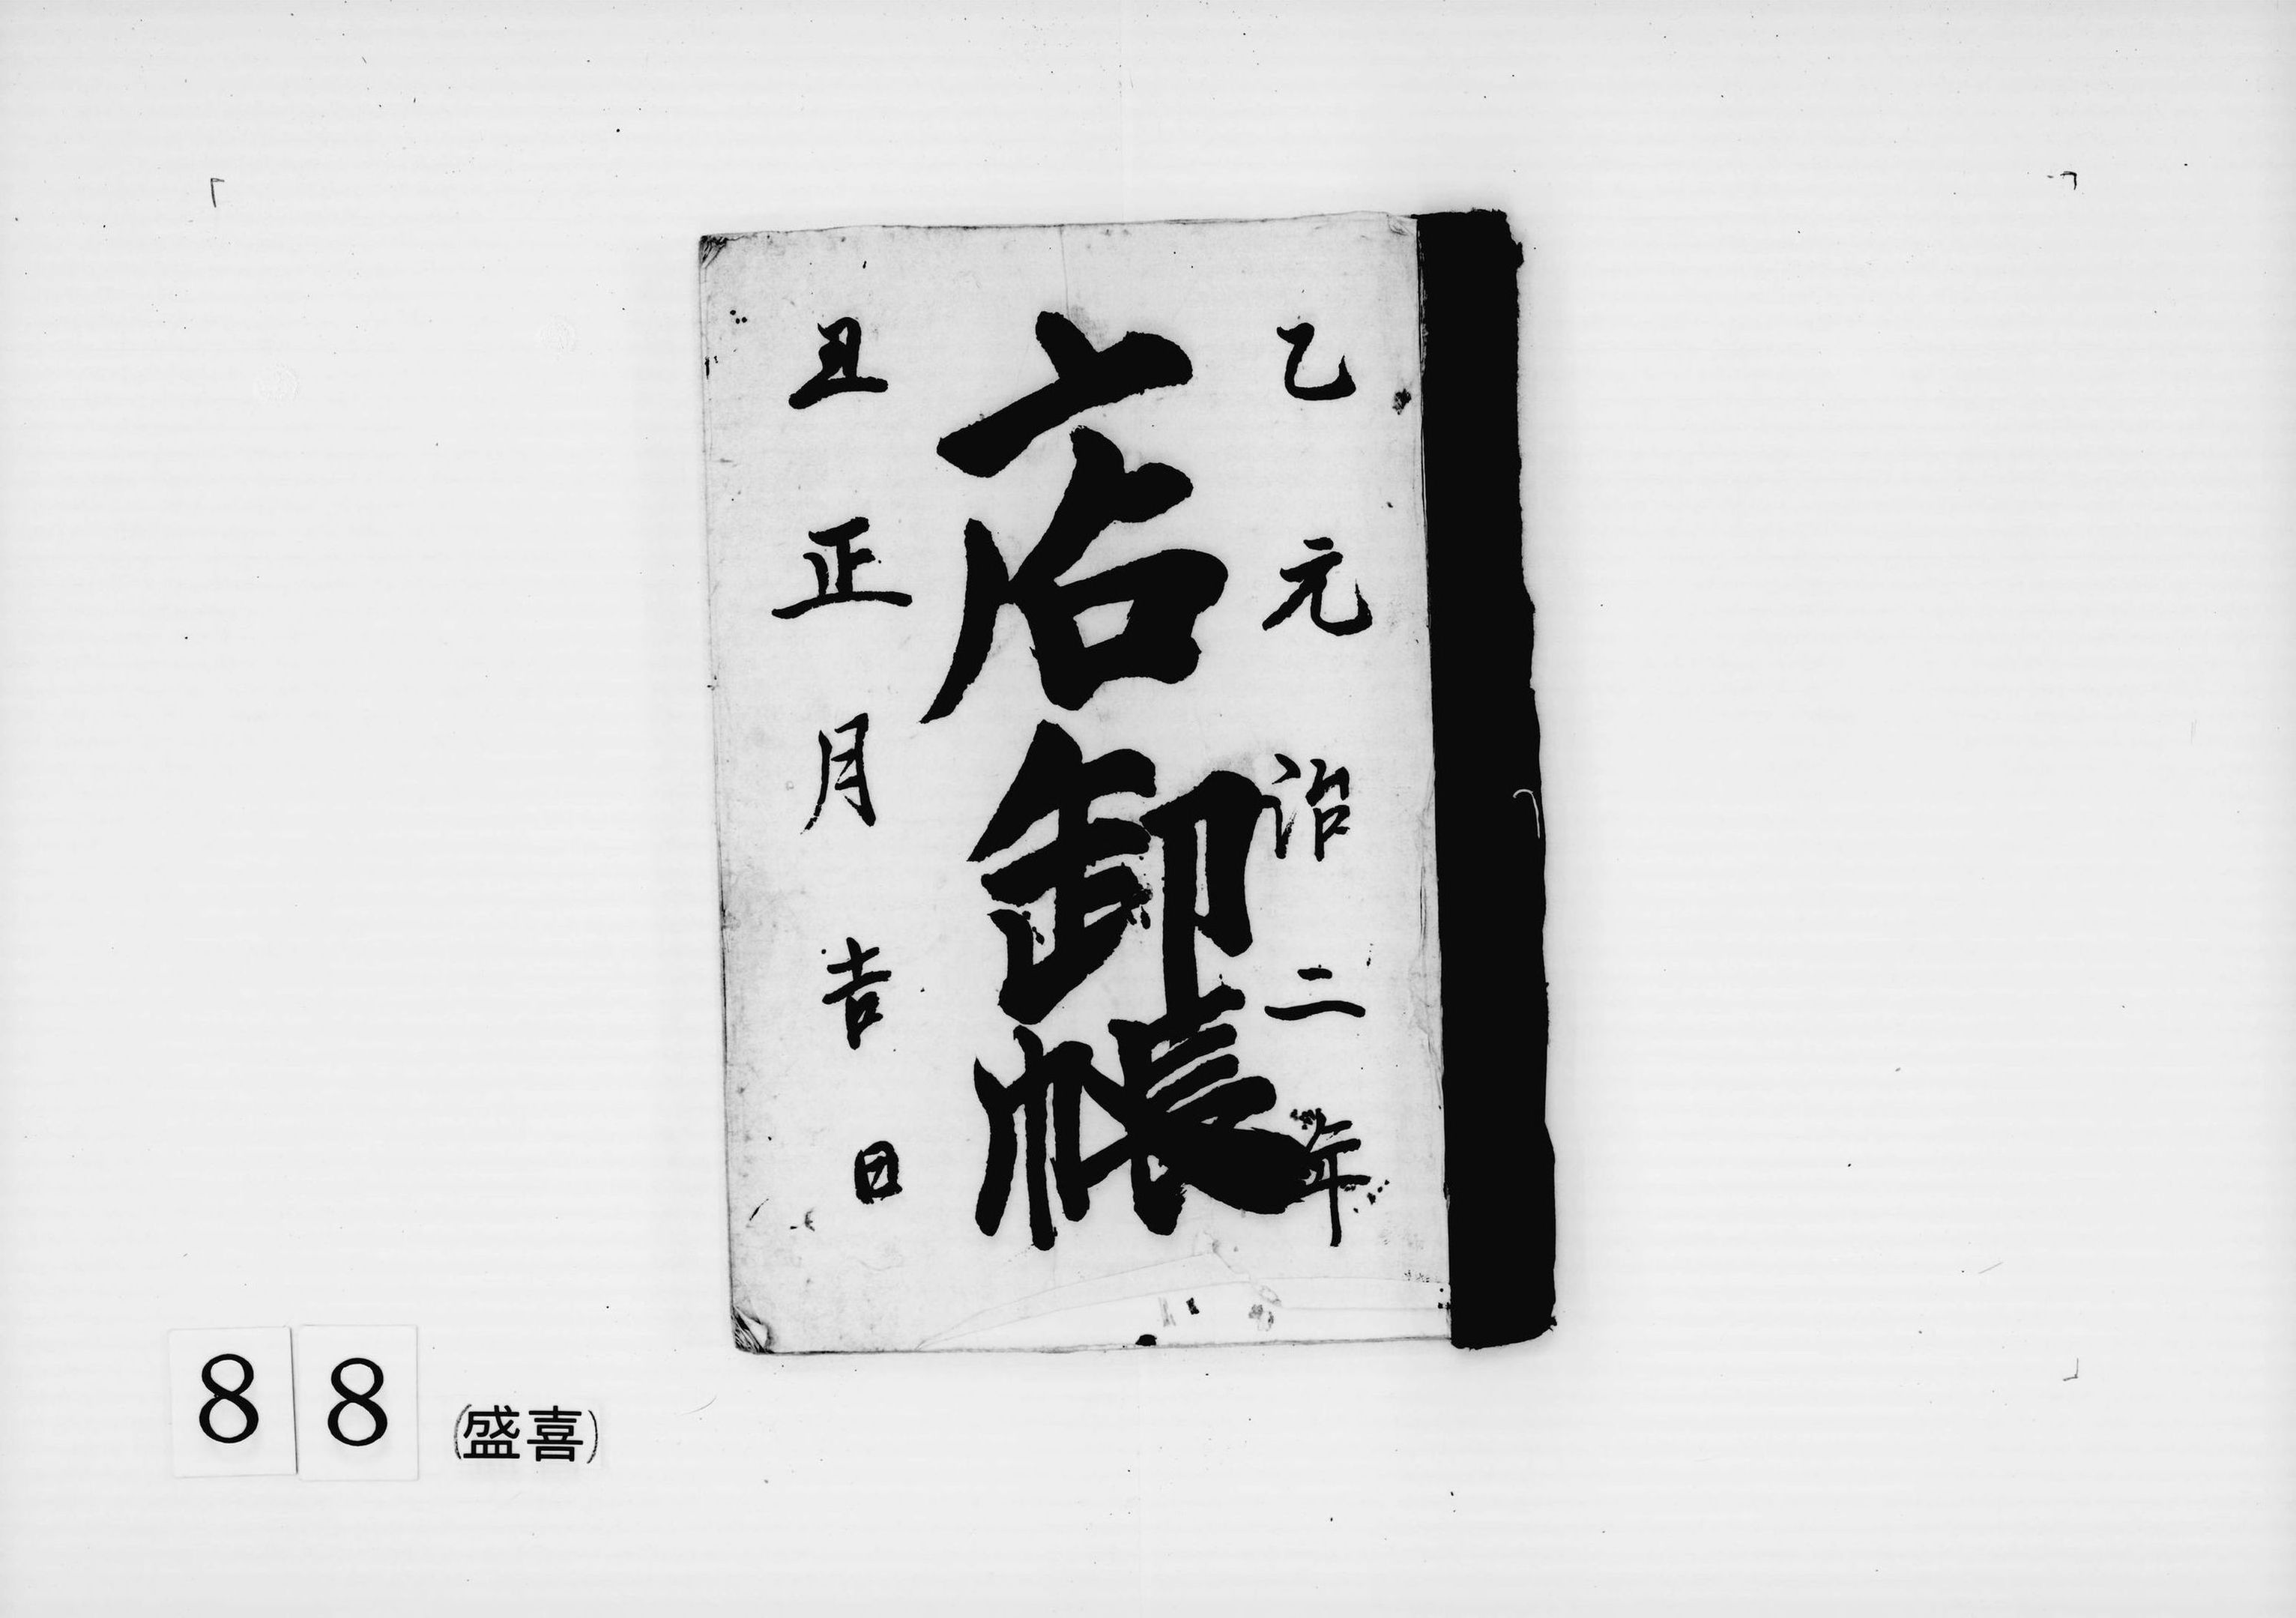 乙元治二年
店卸帳
丑正月吉日
88
(盛喜)